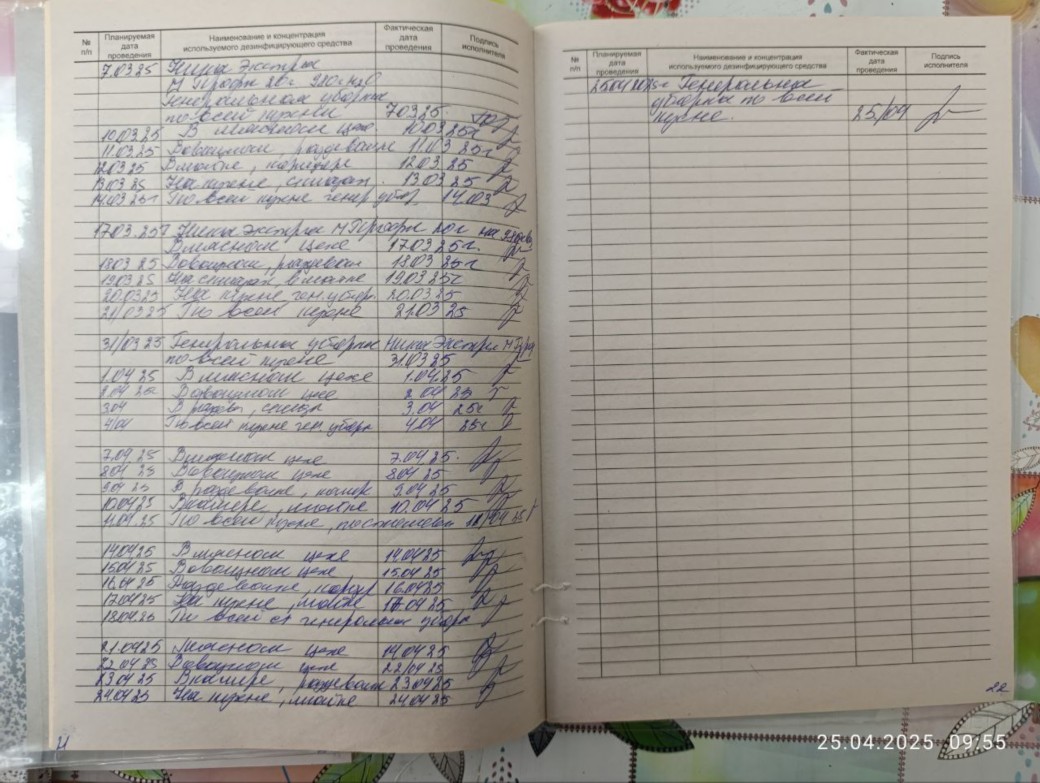 № п/п Планируемая дата проведения Наименование и концентрация используемого дезинфицирующего средства Фактическая дата проведения Подпись исполнителя
7.03 25 Ника Экстра
М
Генеральная уборка
по всей кухни 7.03 25
10.03 25 В мясном цехе. 10.03 25г
11.03.25 В овощном, раздевалке 11.03 25г
12.03 25 В мойке, коридоре 12.03 25
13.03 25 На кухне, складах. 13.03 25
14.03 25г По всей кухне генер убор 14.03
17.03.25г Ника Экстра М Профи 20г на
В мясном цехе 17.03 25г.
18.03 25 В овощном, раздевал 18.03 25г
19.03 25 На складах, в мойке 19.03 25г
20.03 25 На кухне, ген. убор. 20.03 25
21/03 25 По всей кухне 21.03 25
31/03 25 Генеральная уборка Ника Экстра М
по всей кухне 31.03 25
1.04 25 В мясном цехе 1.04.25
2.04 25г В овощном цехе 2.04 25
3.04 В раздев, склад 3.04 25г
4/04 По всей кухне ген. уборк 4.04 25г
7.04 25 В мясном цехе 7.04 25.
8.04 25 В овощном цехе 8.04 25
9.04 25 В раздевалке, 9.04 25
10.04 25 мойке 10.04 25
11.04.25 По всей кухне, 11/04 25
14.04 25 В мясном цехе 14.04 25
15.04 25 В овощном цехе 15.04 25
16.04 25 Раздевалке, корид 16.04 25
17.04 25 На кухне, мойке 17.04 25
18.04.25 По всей ст генеральная уборк
21.04 25 Мясном цехе 14.04 25
22.04 25 В овощном цехе 22/04 25
23.04 25 раздевалк 23.04 25
24.04 25 На кухне, мойке 24.04 25
21
№ п/п Планируемая дата проведения Наименование и концентрация используемого дезинфицирующего средства Фактическая дата проведения Подпись исполнителя
25.04 Генеральная
уборка по всей
кухне. 25/04
22
25.04.2025 09:55